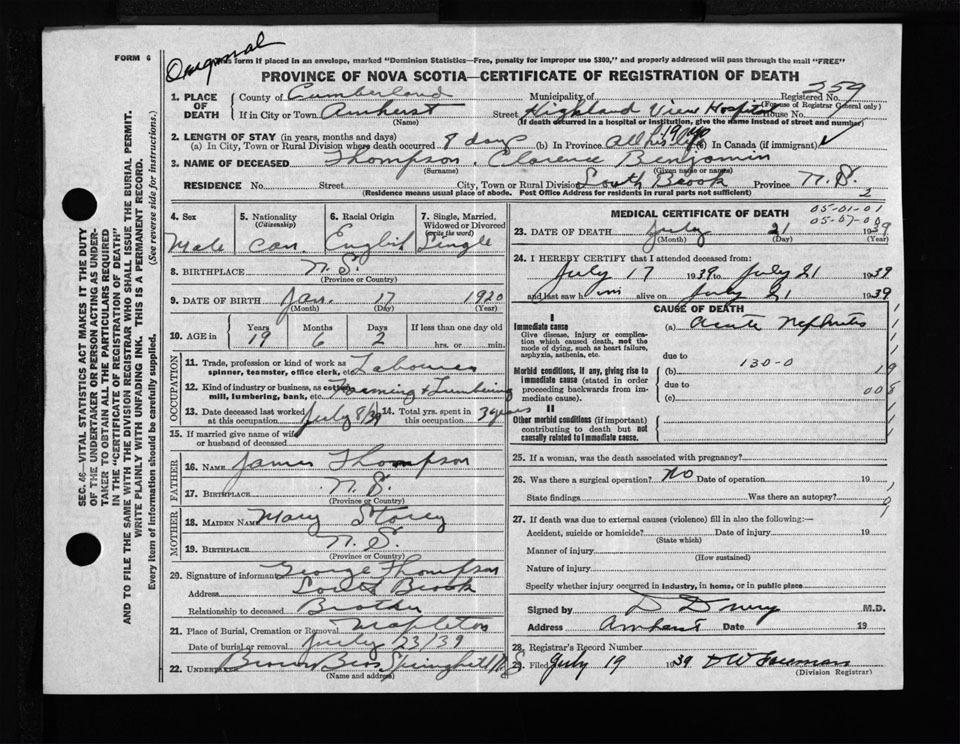 FORM 6
Original
This form if placed in an envelope, marked "Dominion Statistics—Free, penalty for improper use $300," and properly addressed will pass through the mail "FREE"
PROVINCE OF NOVA SCOTIA—CERTIFICATE OF REGISTRATION OF DEATH
1. PLACE OF DEATH County of Cumberland Municipality of Registered No. 259
(For use of Registrar General only)
If in City or Town Amherst Street Highland View Hospital House No.
(Name) (If death occurred in a hospital or institution, give the name instead of street and number)
2. LENGTH OF STAY (in years, months and days)
(a) In City, Town or Rural Division where death occurred 8 days (b) In Province All his life 19 (c) In Canada (if immigrant)
3. NAME OF DECEASED Thompson, Clarence Benjamin
(Surname) (Given name or names)
RESIDENCE No. Street City, Town or Rural Division South Brook Province N. S.
(Residence means usual place of abode. Post Office Address for residents in rural parts not sufficient) 2
4. Sex Male
5. Nationality (Citizenship) Can
6. Racial Origin English
7. Single, Married, Widowed or Divorced (write the word) Single
8. BIRTHPLACE N. S.
(Province or Country)
9. DATE OF BIRTH Jan. 17 1920
(Month) (Day) (Year)
10. AGE in Years 19 Months 6 Days 2 If less than one day old hrs. or min.
OCCUPATION
11. Trade, profession or kind of work as spinner, teamster, office clerk, etc. Labourer
12. Kind of industry or business, as cotton mill, lumbering, bank, etc. Farming & Lumbering
13. Date deceased last worked at this occupation July 8/39 14. Total yrs. spent in this occupation 3 years
15. If married give name of wife or husband of deceased
FATHER
16. NAME James Thompson
17. BIRTHPLACE N. S.
(Province or Country)
MOTHER
18. MAIDEN NAME Mary Storey
19. BIRTHPLACE N. S.
(Province or Country)
20. Signature of informant George Thompson
Address South Brook
Relationship to deceased Brother
21. Place of Burial, Cremation or Removal Mapleton
Date of burial or removal July 23/39
22. UNDERTAKER Brown Bros. Springhill N S
(Name and address)
MEDICAL CERTIFICATE OF DEATH 05-01-01
05-07-00
23. DATE OF DEATH July 21 1939
(Month) (Day) (Year)
24. I HEREBY CERTIFY that I attended deceased from:
July 17 1939 to July 21 1939
and last saw him alive on July 21 1939
CAUSE OF DEATH
I
Immediate cause (a) Acute Nephritis
Give disease, injury or complication which caused death, not the mode of dying, such as heart failure, asphyxia, asthenia, etc.
due to
Morbid conditions, if any, giving rise to immediate cause (stated in order proceeding backwards from immediate cause). (b) 130-0
due to
(c)
II
Other morbid conditions (if important) contributing to death but not causally related to immediate cause.
25. If a woman, was the death associated with pregnancy?
26. Was there a surgical operation? No Date of operation 19
State findings Was there an autopsy?
27. If death was due to external causes (violence) fill in also the following:—
Accident, suicide or homicide? Date of injury 19
(State which)
Manner of injury
(How sustained)
Nature of injury
Specify whether injury occurred in industry, in home, or in public place
Signed by D Drury M.D.
Address Amherst Date 19
28. Registrar's Record Number
29. Filed July 19 1939
(Division Registrar)
SEC. 46—VITAL STATISTICS ACT MAKES IT THE DUTY
OF THE UNDERTAKER OR PERSON ACTING AS UNDERTAKER TO OBTAIN ALL THE PARTICULARS REQUIRED
IN THE "CERTIFICATE OF REGISTRATION OF DEATH"
AND TO FILE THE SAME WITH THE DIVISION REGISTRAR WHO SHALL ISSUE THE BURIAL PERMIT.
WRITE PLAINLY WITH UNFADING INK. THIS IS A PERMANENT RECORD.
Every item of information should be carefully supplied. (See reverse side for instructions.)